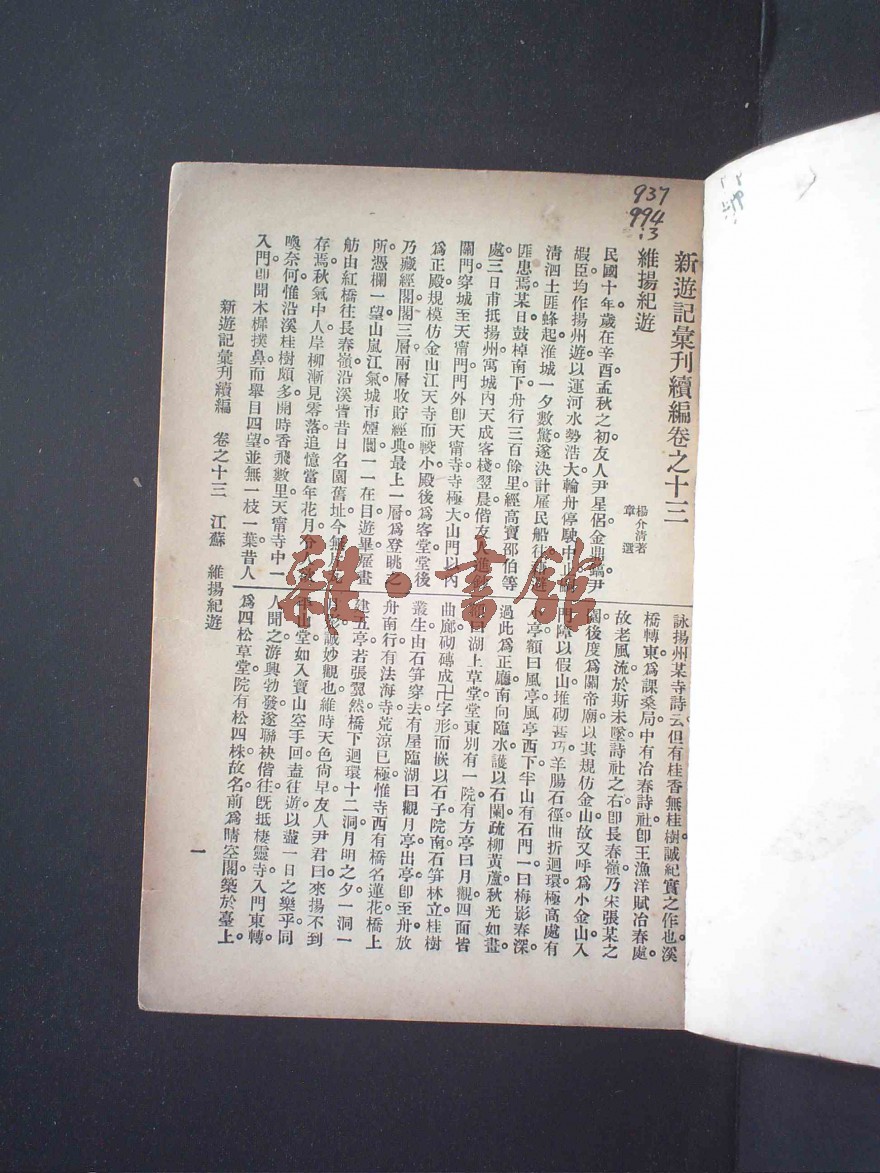 937
994
:3
新遊記彙刊續編卷之十三
維揚紀遊
楊介清著
章 選
民國十年歲在辛酉孟秋之初友人尹星侶金鼎鎬尹
嘏臣均作揚州遊以運河水勢浩大輪舟停駛中
清泗土匪蜂起淮城一夕數驚遂決計雇民船往
匪患焉某日鼓棹南下舟行三百餘里經高寶邵伯等
處三日甫抵揚州寓城內天成客棧翌晨偕友人進
關門穿城至天甯門門外卽天甯寺寺極大山門以內
爲正殿規模仿金山江天寺而較小殿後爲客堂堂後
乃藏經閣閣三層兩層收貯經典最上一層爲登眺之
所憑欄一望山嵐江氣城市煙闤一一在目遊畢雇畫
舫由紅橋往長春嶺沿溪皆昔日名園舊址今無
存焉秋氣中人岸柳漸見零落追憶當年花月
喚奈何惟沿溪桂樹頗多開時香飛數里天甯寺中一
入門卽聞木樨撲鼻而舉目四望並無一枝一葉昔人
詠揚州某寺詩云但有桂香無桂樹誠紀實之作也溪
橋轉東爲課桑局中有冶春詩社卽王漁洋賦冶春處
故老風流於斯未墜詩社之右卽長春嶺乃宋張某之
園後度爲關帝廟以其規仿金山故又呼爲小金山入
門障以假山堆砌甚巧羊腸石徑曲折迴環極高處有
小亭額曰風亭風亭西下半山有石門一曰梅影春深
過此爲正廳南向臨水護以石闌疏柳黃蘆秋光如畫
曰湖上草堂堂東別有一院有方亭曰月觀四面皆
曲廊砌磚成卍字形而嵌以石子院南石筍林立桂樹
叢生由石筍穿去有屋臨湖曰觀月亭出亭卽至舟放
舟南行有法海寺荒涼已極惟寺西有橋名蓮花橋上
建五亭若張翼然橋下迴環十二洞月明之夕一洞一
影誠妙觀也維時天色尙早友人尹君曰來揚不到
平山堂如入寶山空手回盍往遊以盡一日之樂乎同
人聞之游興勃發遂聯袂偕往旣抵棲靈寺入門東轉
爲四松草堂院有松四株故名前爲晴空閣築於臺上
新遊記彙刊續編 卷之十三 江蘇 維揚紀遊
一
雜·書館